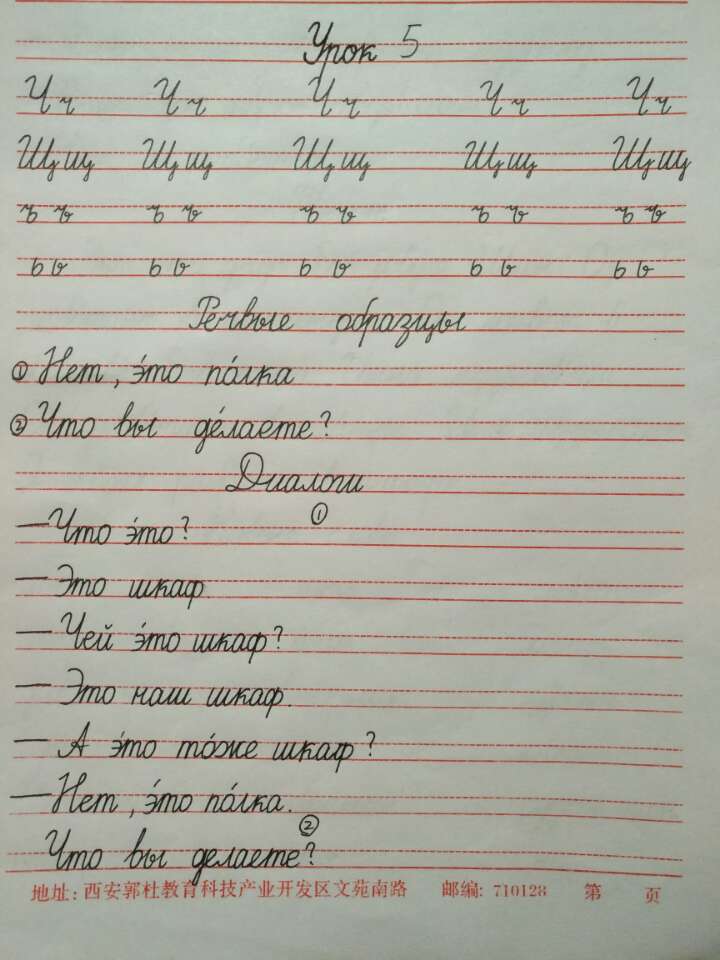 Урок 5
Ч ч Ч ч Ч ч Ч ч Ч ч
Щ щ Щ щ Щ щ Щ щ Щ щ
ъ ъ ъ ъ ъ ъ ъ ъ ъ ъ
ь ь ь ь ь ь ь ь ь ь
Речвые образцы
① Нет, э́то по́лка
② Что вы де́лаете?
Диалоги
①
— Что э́то?
— Это шкаф
— Чей э́то шкаф?
— Это наш шкаф.
— А э́то то́же шкаф?
— Нет, э́то по́лка.
②
Что вы делаете?
地址:西安郭杜教育科技产业开发区文苑南路 邮编: 710128 第 页